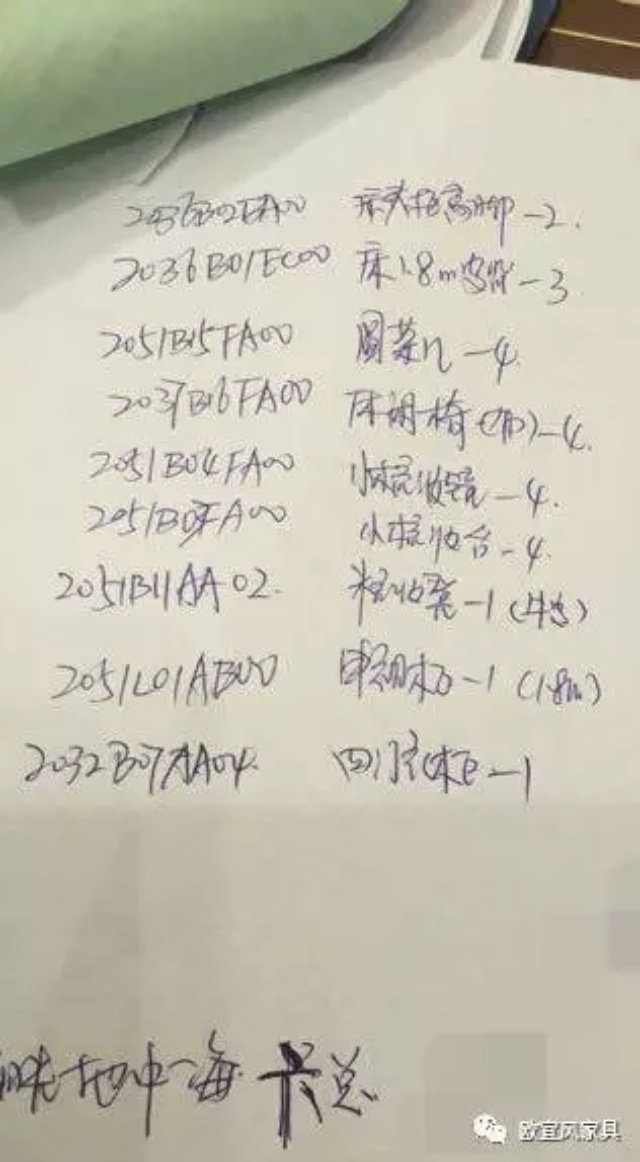 2036B02EA00 床头柜高脚-2.
2036B01EC00 床1.8m-3
2051B15FA00 圆茶几-4
2037B16FA00 休闲椅(布)-4.
2051B04FA00 小梳妆镜-4.
2051B0FA00 小梳妆台-4.
2051B11AA02. 梳妆凳-1
2051L01AB00 -1 (1.8m)
2032B07AA04. 四门衣柜-1
地中海 总
欧宜风家具